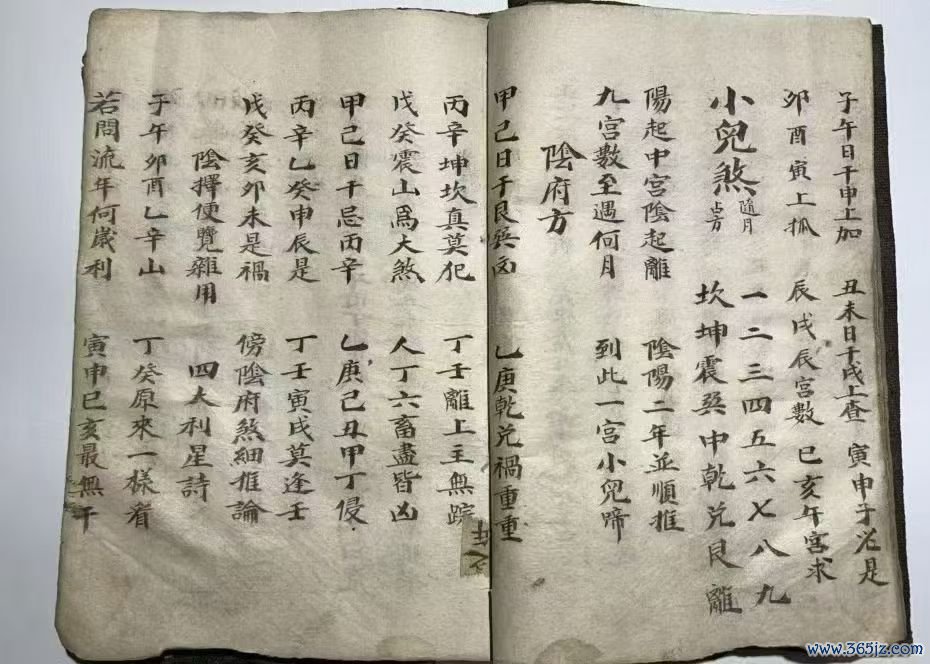 子午日干申上加　丑未日干戌上查　寅申子㞮是
卯酉寅上抓　辰戌辰宮數　巳亥午宮求
小兒煞 隨月占方　一二三四五六七八九
坎坤震巽中乾兌艮離
陽起中宮陰起離　陰陽二年並順推
九宮數至遇何月　到此一宮小兒啼
陰府方
甲己日干艮巽凶　乙庚乾兌禍重重
丙辛坤坎真莫犯　丁壬離上主無踪
戊癸震山為大煞　人丁六畜盡皆凶
甲己日干忌丙辛　乙庚己丑甲丁侵
丙辛乙癸申辰是　丁壬寅戌莫逢壬
戊癸亥卯未是禍　傍陰府煞細推論
陰擇便覽雜用　四大利星詩
子午卯酉乙辛山　丁癸原來一樣看
若問流年何歲利　寅申巳亥最無干
www.365jz.com